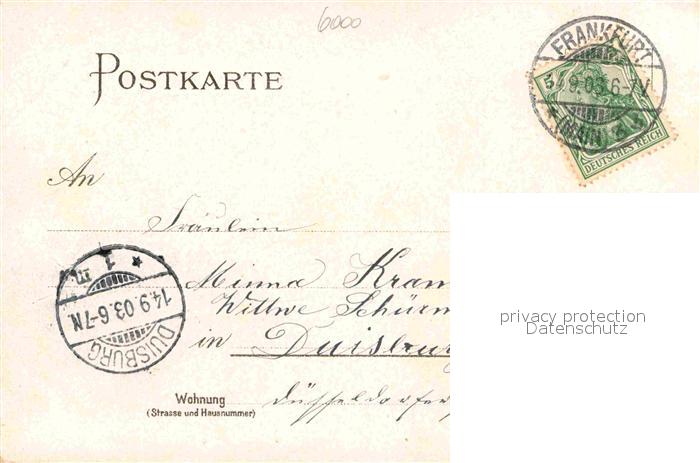 6000
POSTKARTE
FRANKFURT
9.03.6-7V.
(MAIN)
5
DEUTSCHES REICH
An
Fräulein
Minna Kram
Wittwe Schürm
in Duisburg
Wohnung
(Strasse und Hausnummer)
Düsseldorfer
1
14.9.03.6-7N.
DUISBURG
privacy protection
Datenschutz